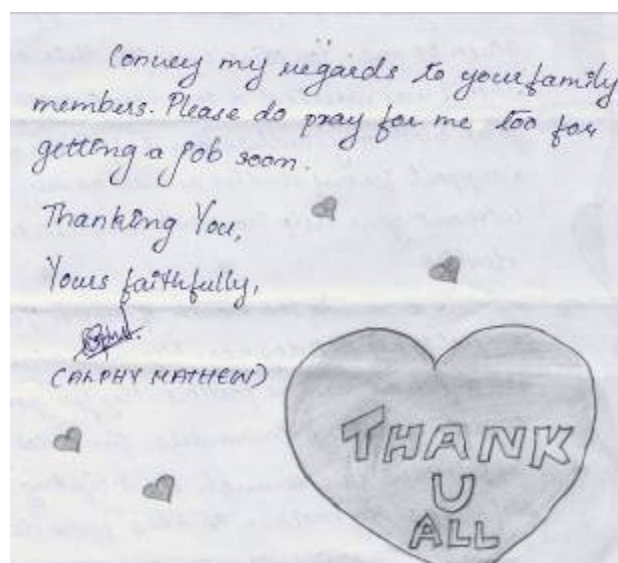 Convey my regards to your family
members. Please do pray for me too for
getting a job soon.
Thanking You,
Yours faithfully,
(ALPHY MATHEW)
THANK
U
ALL